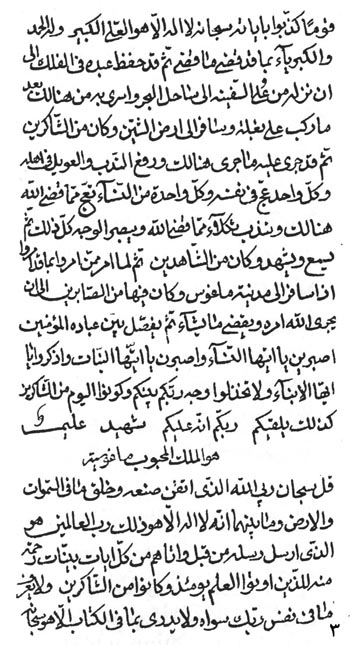 قوما كذبوا بايات سبحانه لا اله الا هو العلي الكبير وله الحمد
والكبرياء بما قد قضى ما قضى ثم قد حفظ عبده في الفلك الى
ان نزله من تلك السفينه الى ساحل البحر واسرى به من هنالك بعد
ما ركب على بغلة وسافر الى ارض التين وكان من الشاكرين
ثم قد جرى عليه ما جرى هنالك ورفع الندب والعويل في اهله
وكل واحد في نفسه وكل واحدة من النساء مما قضى الله
هنالك وتندب مما قضى الله ويصبر الوجه كل ذلك ثم
يسمع ويشهد وكان من الشاهدين ثم لما امر من امر وا بما قدروا
اذا سافر الى مدينة ماغوس وكان فيها من الصابرين الى ان
يجرى الله امره ويقضى ما يشاء ثم يفصل بين عباده المؤمنين
اصبرن يا ايتها النساء واصبرون يا ايتها البنات واذكروا يا
ايها الابناء ولا تحزنوا وجه ربكم بينكم وكونوا اليوم من الشاكرين
كذلك يلقيكم ربكم انه عليكم شهيد عليم
هو الملك المحبوب
قل سبحان ربي الله الذى اتقن صنعه وخلق ما في السموات
والارض وما بينهما انه لا اله الا هو ذلك رب العالمين هو
الذى ارسل رسله من قبل واتاهم من كل ايات بينات رحمة
منه للذين اوتوا العلم يومئذ وكانوا من الشاكرين ولا يعزب
ما في نفس ربك سواه ولا يدرى بما في الكتاب الا هو سبحانه
٣